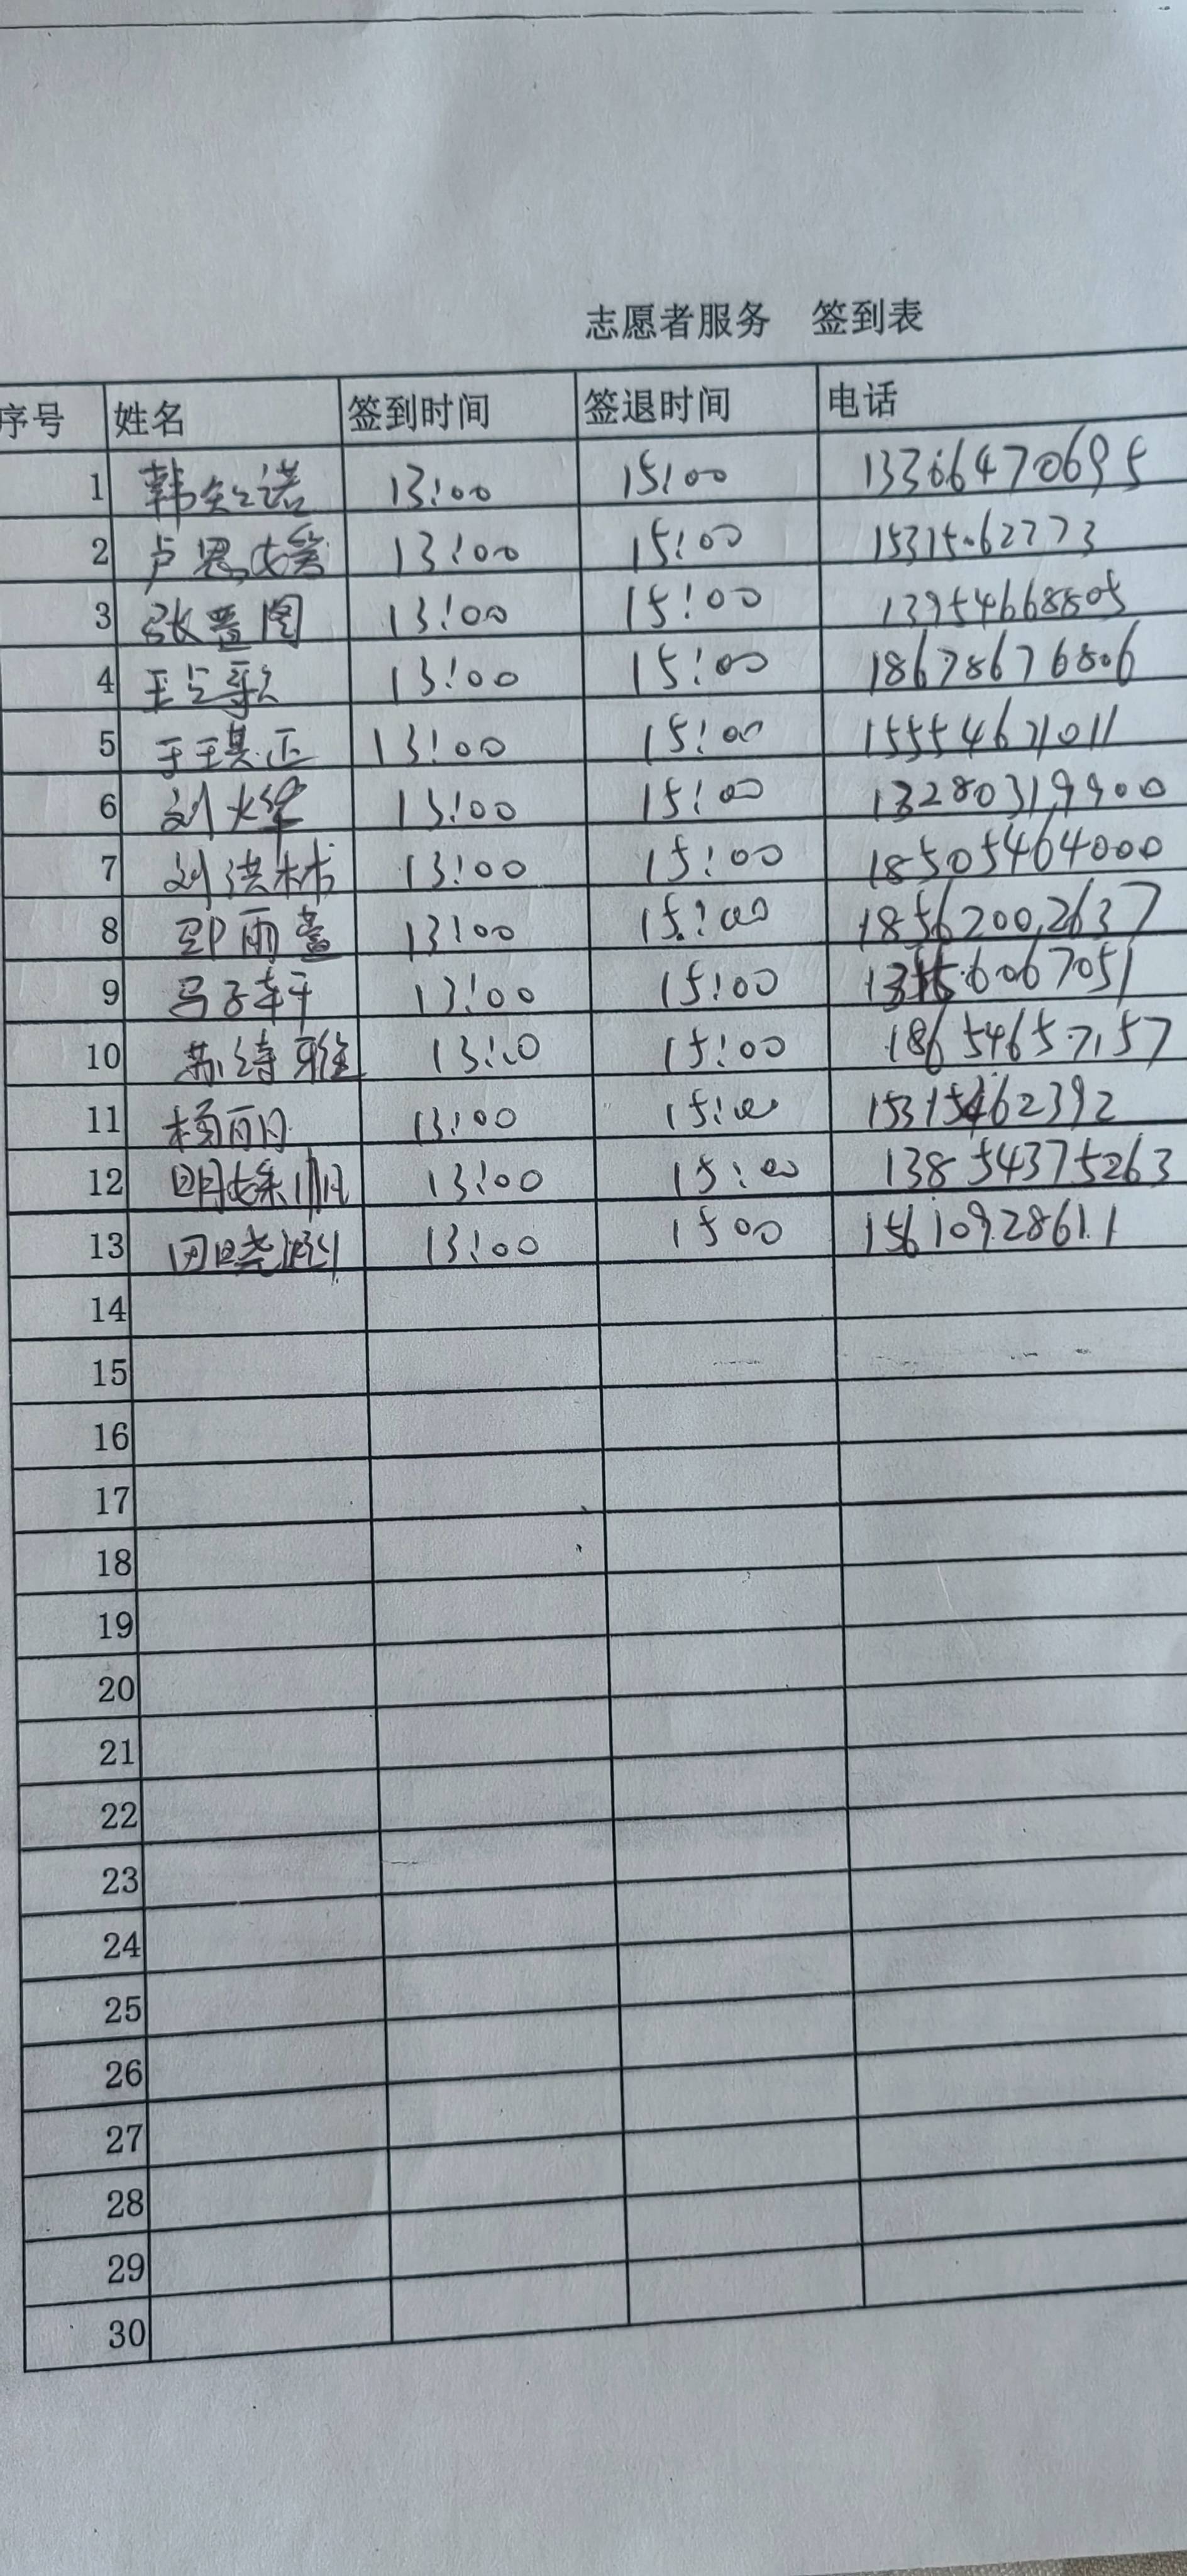 志愿者服务 签到表
序号 姓名 签到时间 签退时间 电话
1 韩 诺 13:00 15:00 13366470695
2 卢恩 13:00 15:00
3 张 13:00 15:00 13954668805
4 王 歌 13:00 15:00 18678676806
5 于 正 13:00 15:00 15554671011
6 刘 13:00 15:00
7 刘洪 13:00 15:00 18505464000
8 邵雨萱 13:00 15:00 18562002637
9 马子轩 13:00 15:00
10 苏诗雅 15:00 18654657157
11 杨丽 13:00 15:00 15315462392
12 明 帆 13:00 15:00 13854375263
13 田晓 13:00 1500 15610928611
14
15
16
17
18
19
20
21
22
23
24
25
26
27
28
29
30